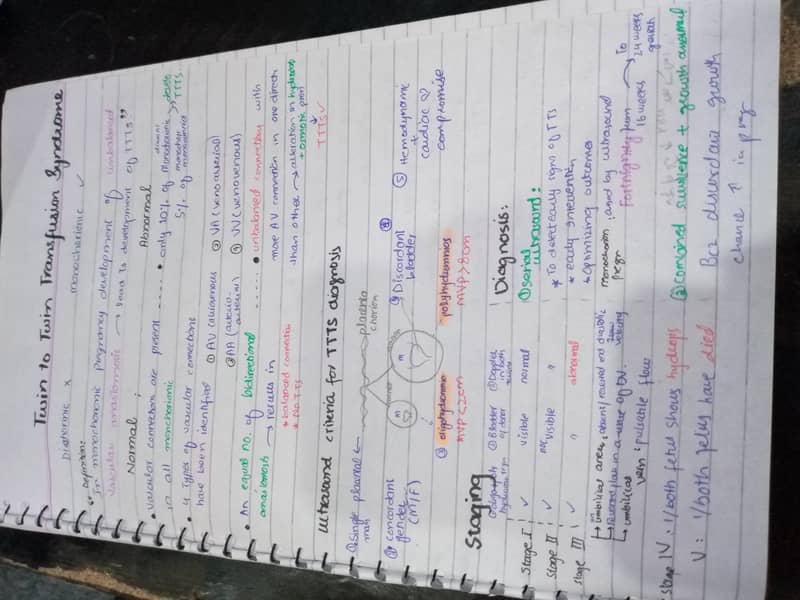 Twin to Twin Transfusion Syndrome
Dichorionic x monochorionic ✓
"Definition:
In monochorionic pregnancy development of unbalanced
vascular anastomosis → lead to development of TTTS"
Normal : Abnormal
• vascular connection are present ---- • only 10% of monochorionic → devlo TTTS.
in all monochorionic 5% of
• 4 Types of vascular connections
have been identified ① AV (arteriovenous ② VA (venoarterial)
③ AA ④ VV (venovenous)
• An equal no. of bidirectional ----- • unbalanced connectivity with
anastomosis → results in more AV connection in one direct
* balanced connection than other → alteration in hydrosta
* No TTTs + osmotic prsn
↓
TTTS ✓
Ultrasound criteria for TTTS diagnosis
① Single placental ← placenta
mass chorion
② concordant ④ Discordant ⑤ Hemodynamic
gender bladder + cardiac
(M/F) compromise
③ oligohydramnios polyhydramnios
MVP <2cm MVP >8cm
Staging Diagnosis:
② Bladder of donor ③ Doppler in both
Stage I : ✓ visible normal
Stage II ✓ Not visible "
stage III ✓ " abnormal
① serial
ultrasound :
* To detect early signs of TTTS
* early intervention
→ Optimizing outcomes
monochorion by ultrasound
Fortnightly from → To
16 weeks 24 weeks
→ umbilical artery, absent/reversed end diastolic
velocity
→ Reversed flow in a wave of DV.
→ umbilical vein : pulsatile flow
Stage IV : 1/both fetus shows hydrops
V : 1/both fetus have died
② combined + growth
Bcz discordant growth
chance ↑ in preg